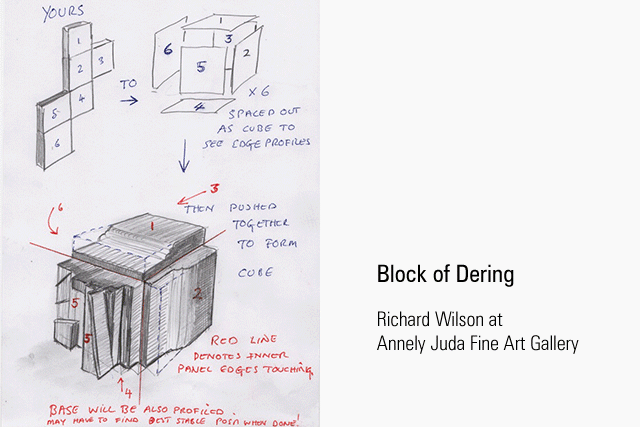 YOURS
1
2
3
4
5
6
TO
1
6
3
2
5
4
X 6
SPACED OUT
AS CUBE TO
SEE EDGE PROFILES
3
THEN PUSHED
TOGETHER
TO FORM
CUBE
6
1
2
5
5
RED LINE
DENOTES INNER
PANEL EDGES TOUCHING
4
BASE WILL BE ALSO PROFILED.
MAY HAVE TO FIND BEST STABLE POSN WHEN DONE!
Block of Dering
Richard Wilson at
Annely Juda Fine Art Gallery